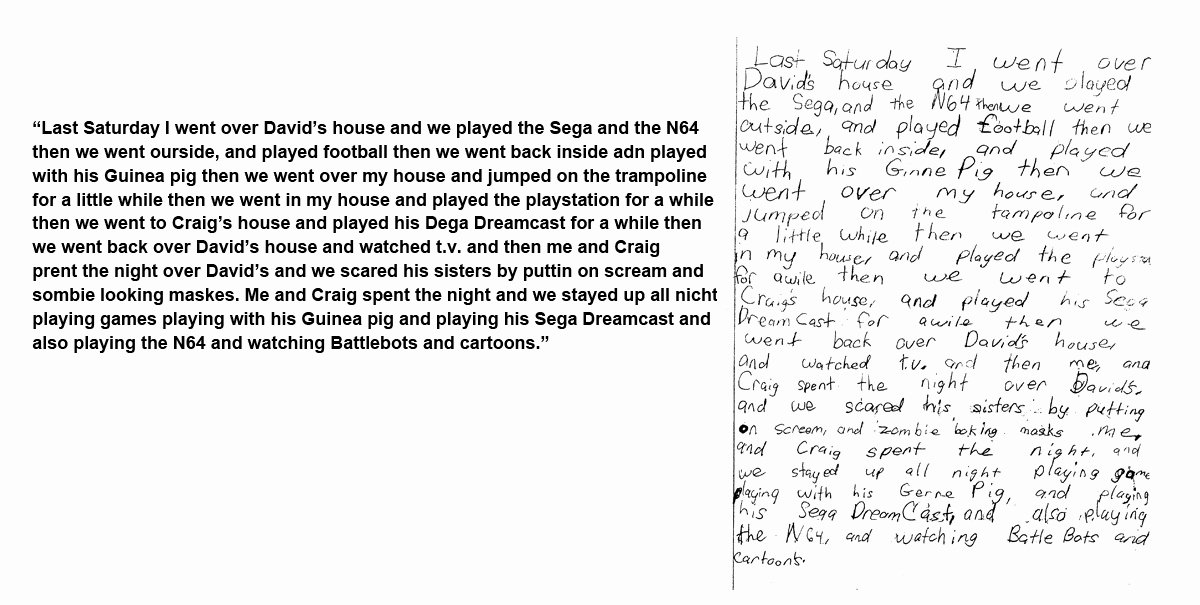 “Last Saturday I went over David’s house and we played the Sega and the N64
then we went ourside, and played football then we went back inside adn played
with his Guinea pig then we went over my house and jumped on the trampoline
for a little while then we went in my house and played the playstation for a while
then we went to Craig’s house and played his Dega Dreamcast for a while then
we went back over David’s house and watched t.v. and then me and Craig
prent the night over David’s and we scared his sisters by puttin on scream and
sombie looking maskes. Me and Craig spent the night and we stayed up all nicht
playing games playing with his Guinea pig and playing his Sega Dreamcast and
also playing the N64 and watching Battlebots and cartoons.”
Last Saturday I went over
David's house and we played
the Sega, and the N64 then we went
outside, and played football then we
went back inside, and played
with his Ginne Pig then we
went over my house, and
jumped on the tampoline for
a little while then we went
in my house, and played the
for awile then we went to
Craig's house, and played his Sega
DreamCast for awile then we
went back over David's house,
and watched t.v. and then me, and
Craig spent the night over David's,
and we scared his sisters by putting
on scream, and zombie looking masks me,
and Craig spent the night, and
we stayed up all night playing game
playing with his Gerne Pig, and playing
his Sega DreamCast, and also playing
the N64, and watching Batle Bots and
cartoons.